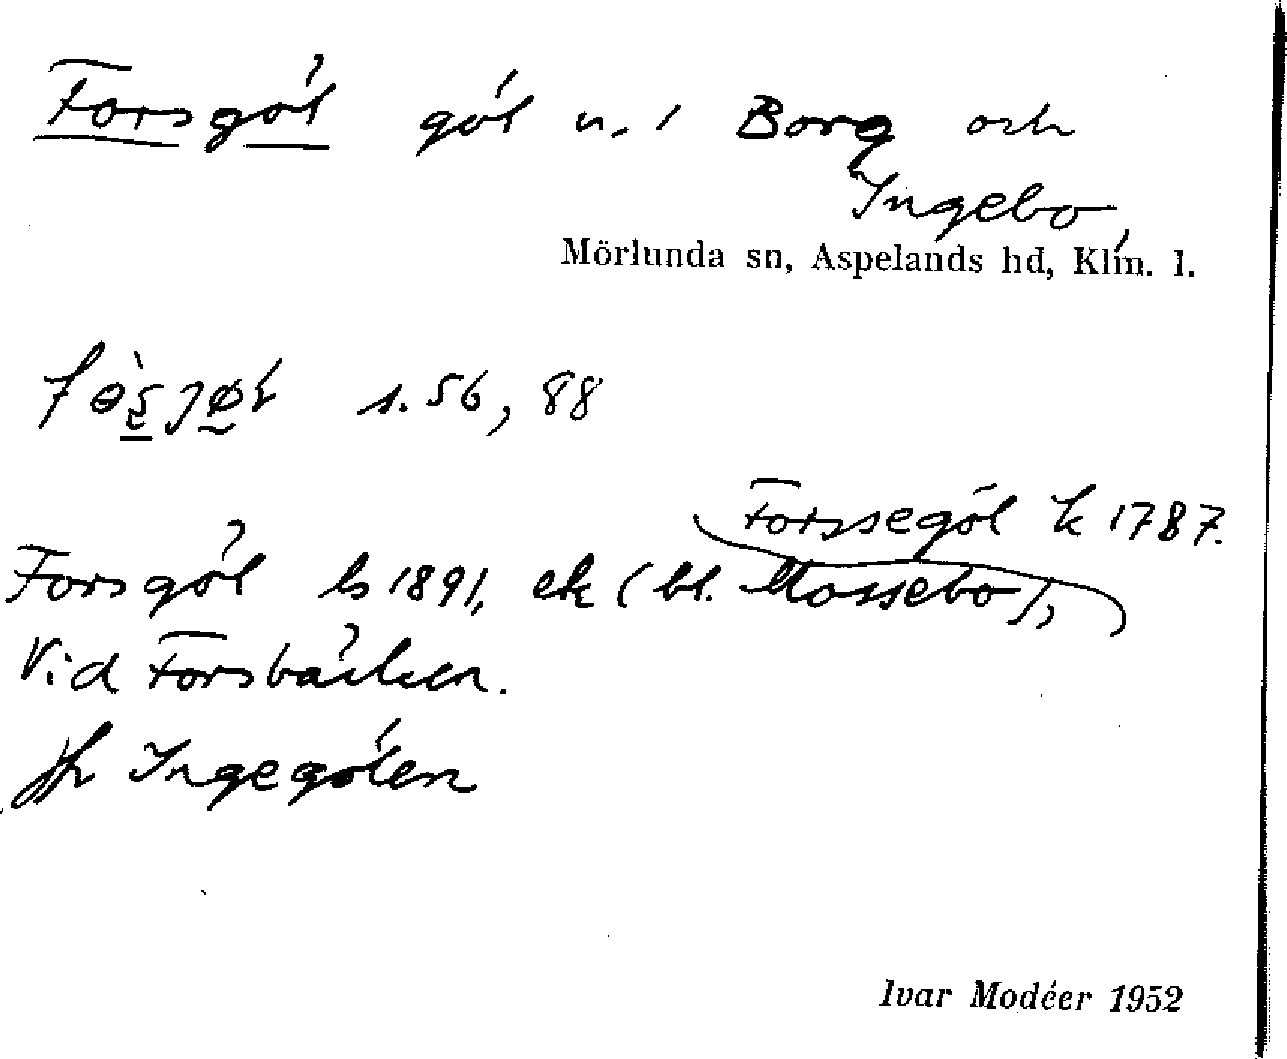 Forsgöl göl n. i Borg och
Ingebo,
Mörlunda sn, Aspelands hd, Klm. l.
s. 56, 88
Forssegöl k 1787.
Forsgöl ls 1891, ek (bl. Mossebo),
Vid Forsbäcken.
Jfr Ingegölen
Ivar Modéer 1952